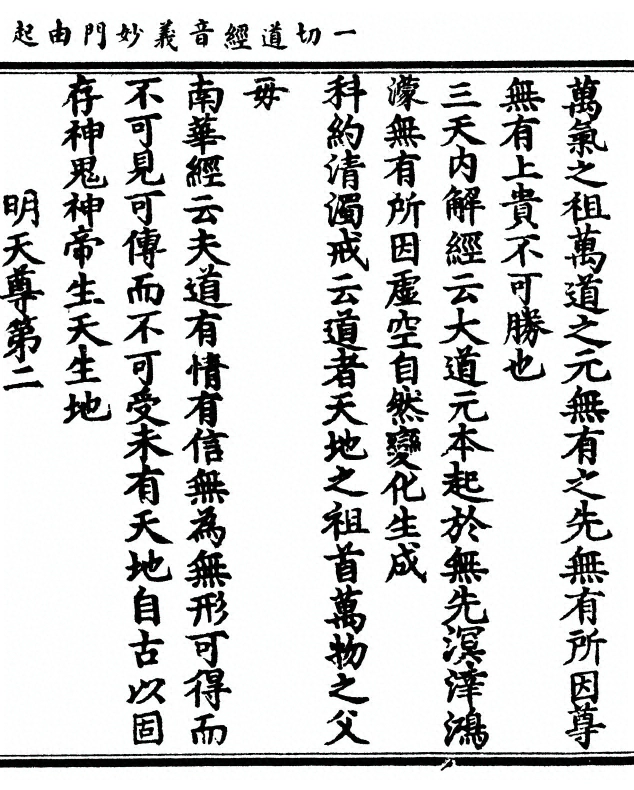 一切道經音義妙門由起
萬氣之祖萬道之元無有之先無有所因尊
無有上貴不可勝也
三天內解經云大道元本起於無先溟涬鴻
濛無有所因虛空自然變化生成
科約清濁戒云道者天地之祖首萬物之父
毋
南華經云夫道有情有信無為無形可得而
不可見可傳而不可受未有天地自古以固
存神鬼神帝生天生地
明天尊第二